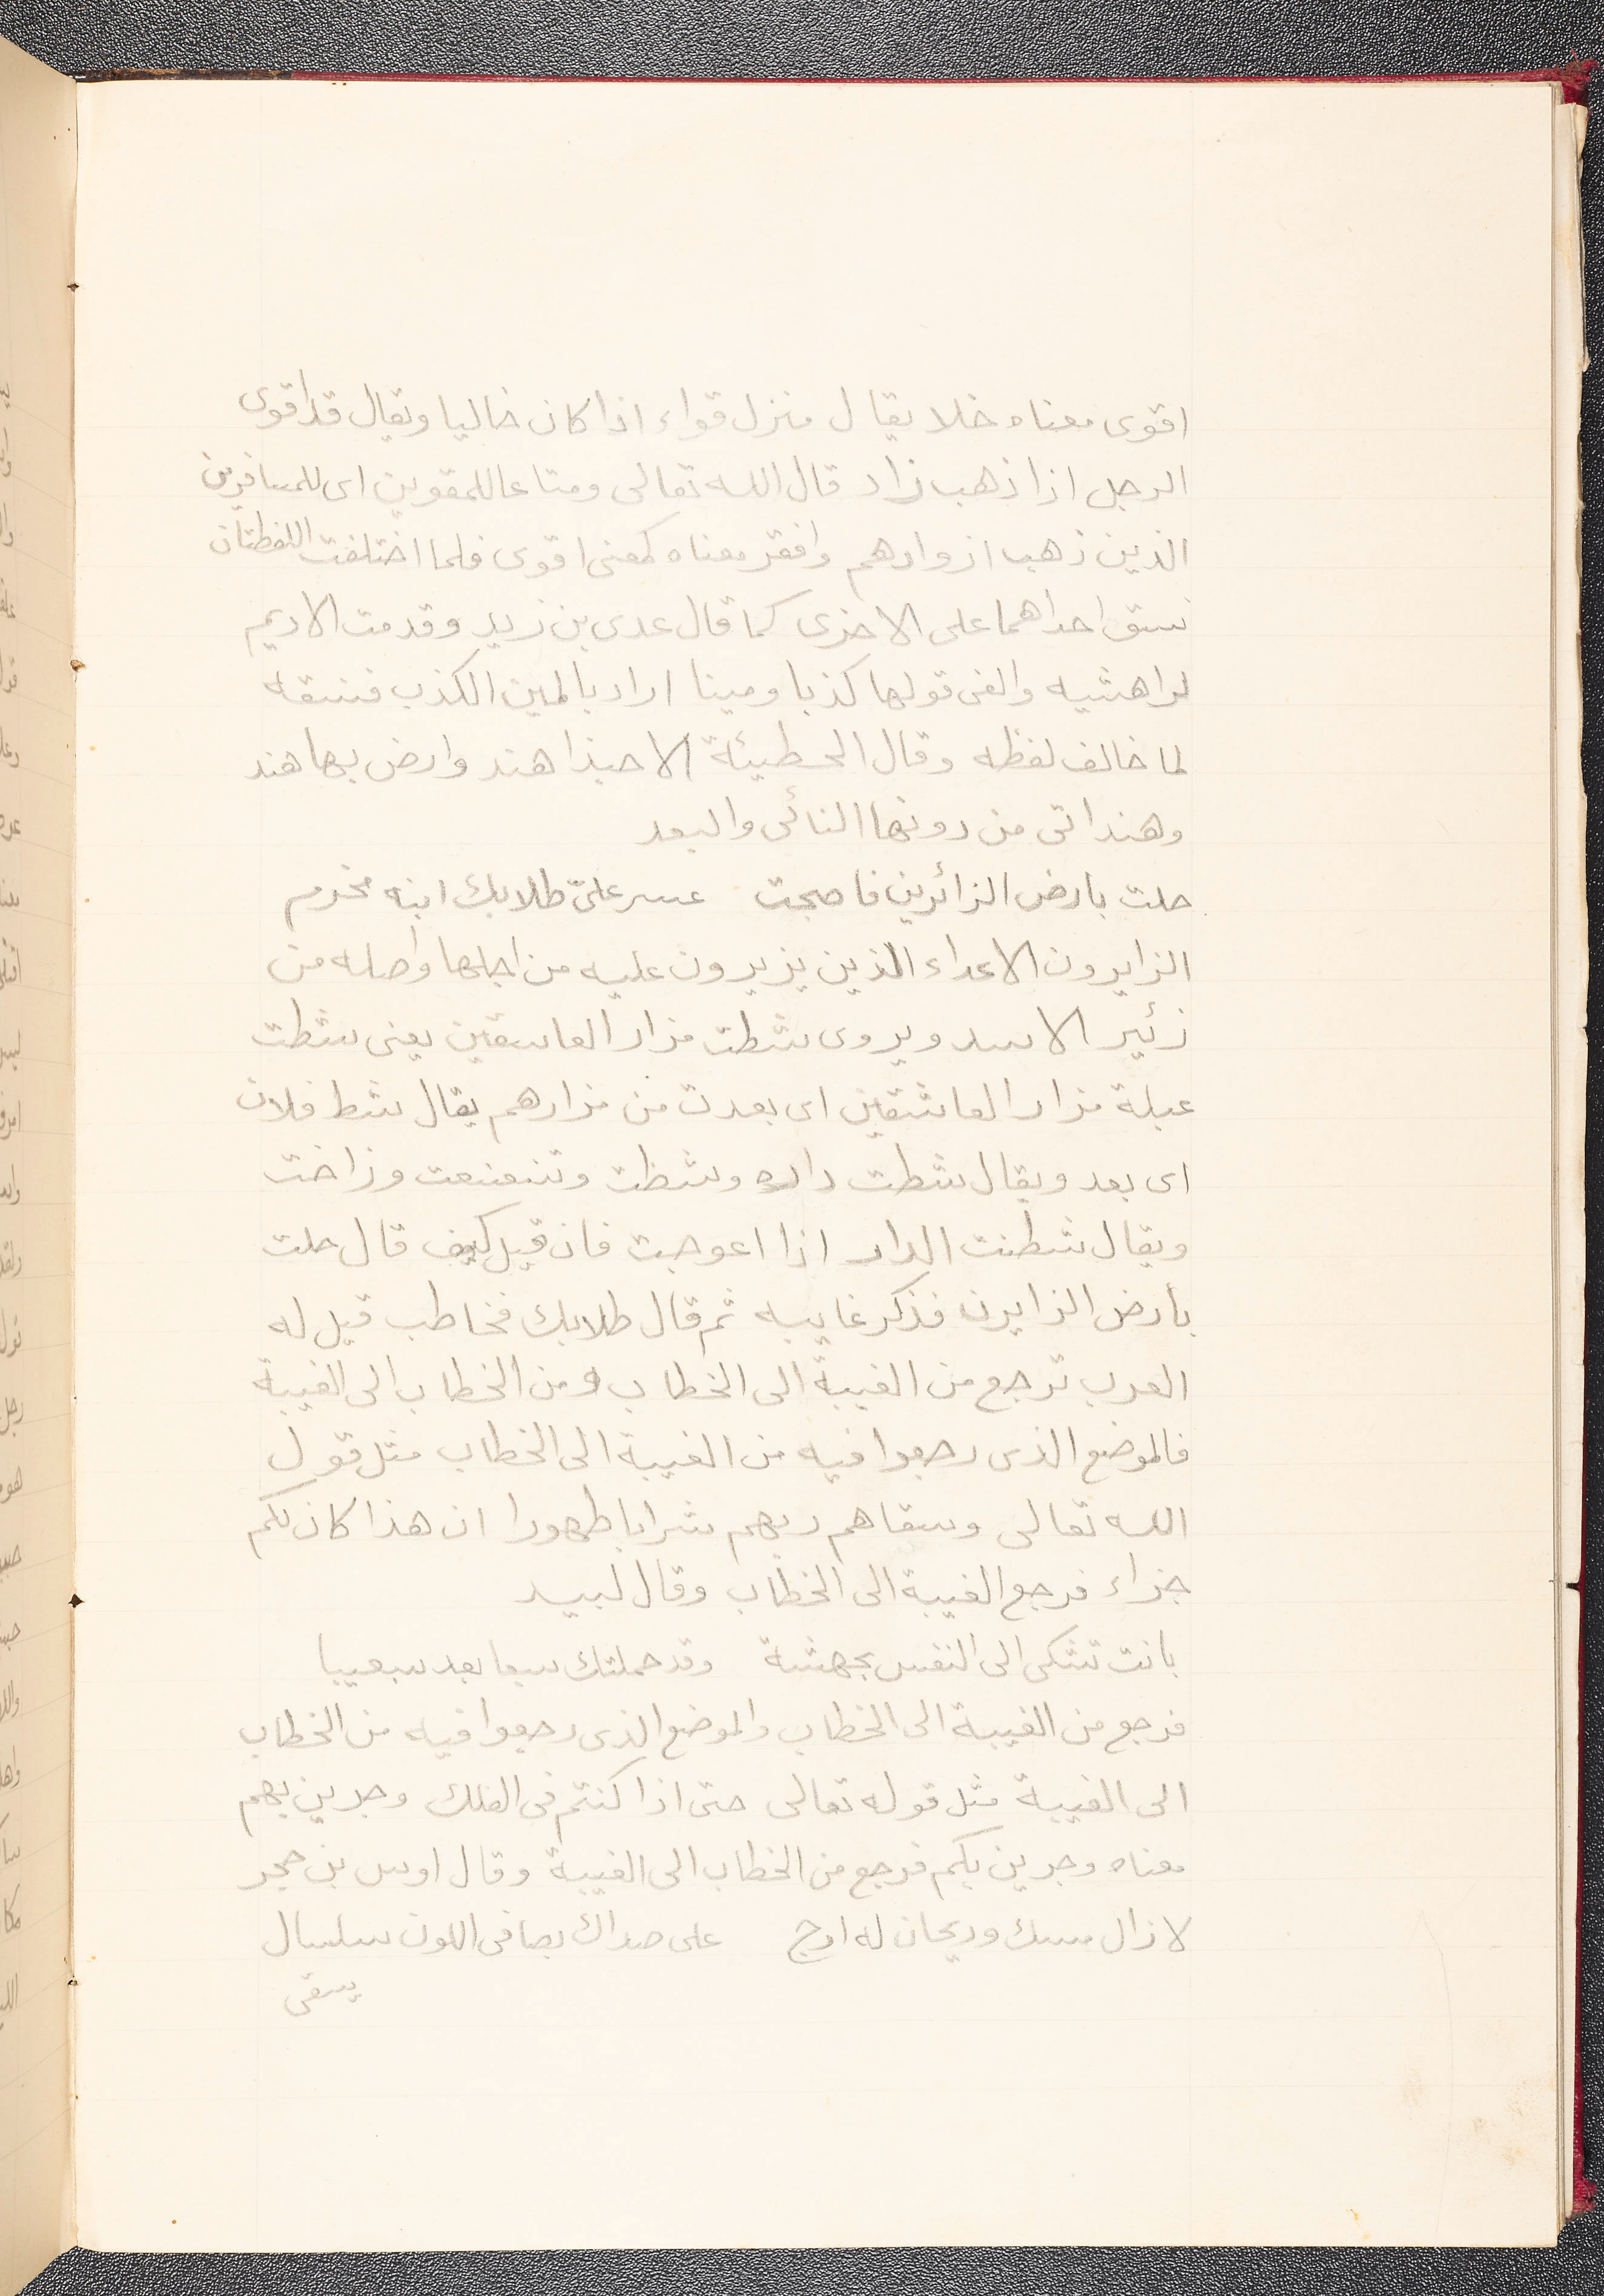 اقوى معناه خلا يقال منزل قواء اذا كان خاليا ويقال قد اقوى
الرجل اذا ذهب زاد قال الله تعالى ومتاعا للمقوين اى للمسافرين
الذين ذهب ازوادهم وافقر معناه كمعنى اقوى فلما اختلفت اللفظتان
نسق احداهما على الاخرى كما قال عدى بن زيد وقدمت الاديم
لراهشيه والفى قولها كذبا ومينا اراد بالمين الكذب فنسقه
لما خالف لفظه وقال الحطيئة الا حبذا هند وارض بها هند
وهند اتى من دونها النائى والبعد
حلت بارض الزائرين فاصبحت عسر علىّ طلابك ابنه مخرم
الزايرون الاعداء الذين يزيرون عليه من اجلها واصله من
زئير الاسد ويروى شطت مزار العاسقين يعنى شطت
عبلة مزار العاشقين اى بعدت من مزارهم يقال شط فلان
اى بعد ويقال شطت داره وشظت وتنعنعت وزاخت
ويقال شطنت الدار اذا اعوجت فان قيل كيف قال حلت
بأرض الزايرن فذكر غايبه ثم قال طلابك فخاطب قيل له
العرب ترجع من الغيبة الى الخطاب ومن الخطاب الى الغيبة
فالموضع الذى رجعوا فيه من الغيبة الى الخطاب مثل قول
الله تعالى وسقاهم ربهم شرابا طهورا ان هذا كان لكم
جزاء فرجع الغيبة الى الخطاب وقال لبيد
بانت تشكى الى النفس بجهشة وقد حملتك سبعا بعد سبعيبا
فرجع من الغيبة الى الخطاب والموضع الذى رجعوا فيه من الخطاب
الى الغيبة مثل قوله تعالى حتى اذا كنتم فى الفلك وجرين بهم
معناه وجرين بكم فرجع من الخطاب الى الغيبة وقال اوس بن حجر
لا زال مسك وريحان له ارج على صداك بصافى اللون سلسال
يسقى